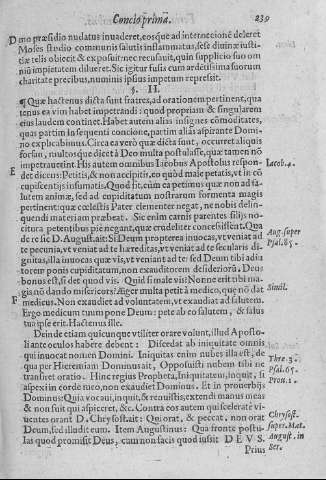 Concio prima.
239
D mo præsidio nudatus inuaderet, eosque ad internecionẽ deleret
Moses studio communis salutis inflammatus, sese diuinæ iusti-
tiæ telis obiecit & exposuit nec recusauit, quin supplicio suo om
niũ impietatem dilueret. Sic igitur fusis cum ardētissima suorum
charitate precibus, numinis ipsius impetum repressit.
§. II.
¶ Quæ hactenus dicta sunt fratres, ad orationem pertinent, qua
tenus ea vim habet impetrandi: quod propriam & singularem
eius laudem continet. Habet autem alias insignes cõmoditates,
quas partim in sequenti concione, partim alias aspirante Domi-
no explicabimus. Circa ea verò quæ dicta sunt, occurret aliquis
forsan, multos que dicet à Deo multa postulasse, quæ tamen nõ
impetrauerint. His autem omnibus Iacobus Apostolus respon-
E det dicens: Petitis, & non accipitis, eo quòd male petatis, vt in cõ
cupiscentijs insumatis. Quod fit, cùm ea petimus quæ non ad sa-
lutem animæ, sed ad cupiditatum nostrarum fomenta magis
pertinent: quæ cœlestis Pater clementer negat, ne nobis delin-
quendi materiam præbeat. Sic enim carnis parentes filijs no-
citura petentibus piè negant, quæ crudeliter concessissent. Qua
de re sic D. August. ait: Si Deum propterea inuocas, vt veniat ad
te pecunia, vt veniat ad te hæreditas, vt veniat ad te secularis di-
gnitas, illa inuocas quæ vis, vt veniant ad te: sed Deum tibi adiu
torem ponis cupiditatum, non exauditorem desideriorũ. Deus
bonus est, si det quod vis. Quid si male vis? Nonne erit tibi ma-
gis nõ dando misericors? Æger multa petit à medico, quę nõ dat
F medicus. Non exaudiet ad voluntatem, vt exaudiat ad salutem.
Ergo medicum tuum pone Deum: pete ab eo salutem, & salus
tua ipse erit. Hactenus ille.
Deinde etiam quicunque vtiliter orare volunt, illud Aposto-
li ante oculos habere debent: Discedat ab iniquitate omnis
qui inuocat nomen Domini. Iniquitas enim nubes illa est, de
qua per Hieremiam Dominus ait, Opposuisti nubem tibi ne
transiret oratio. Hinc regius Propheta, Iniquitatem, inquit, si
aspexi in corde meo, non exaudiet Dominus. Et in prouerbijs
Dominus: Quia vocaui, inquit, & renuistis, extendi manus meas
& non fuit qui aspiceret, &c. Contrà eos autem qui scelerate vi-
uentes orant D. Chrysost. ait: Qui orat, & peccat, non orat
Deum, sed illudit eum. Item Augustinus: Qua fronte postu-
las quod promisit Deus, cùm non facis quod iussit DEVS.
Prius
Iacob. 4.
Aug. super
Psal. 85.
Simil.
Thre. 3.
Psal. 65.
Prou. 1.
Chrysost.
super Mat.
August. in
Ser.